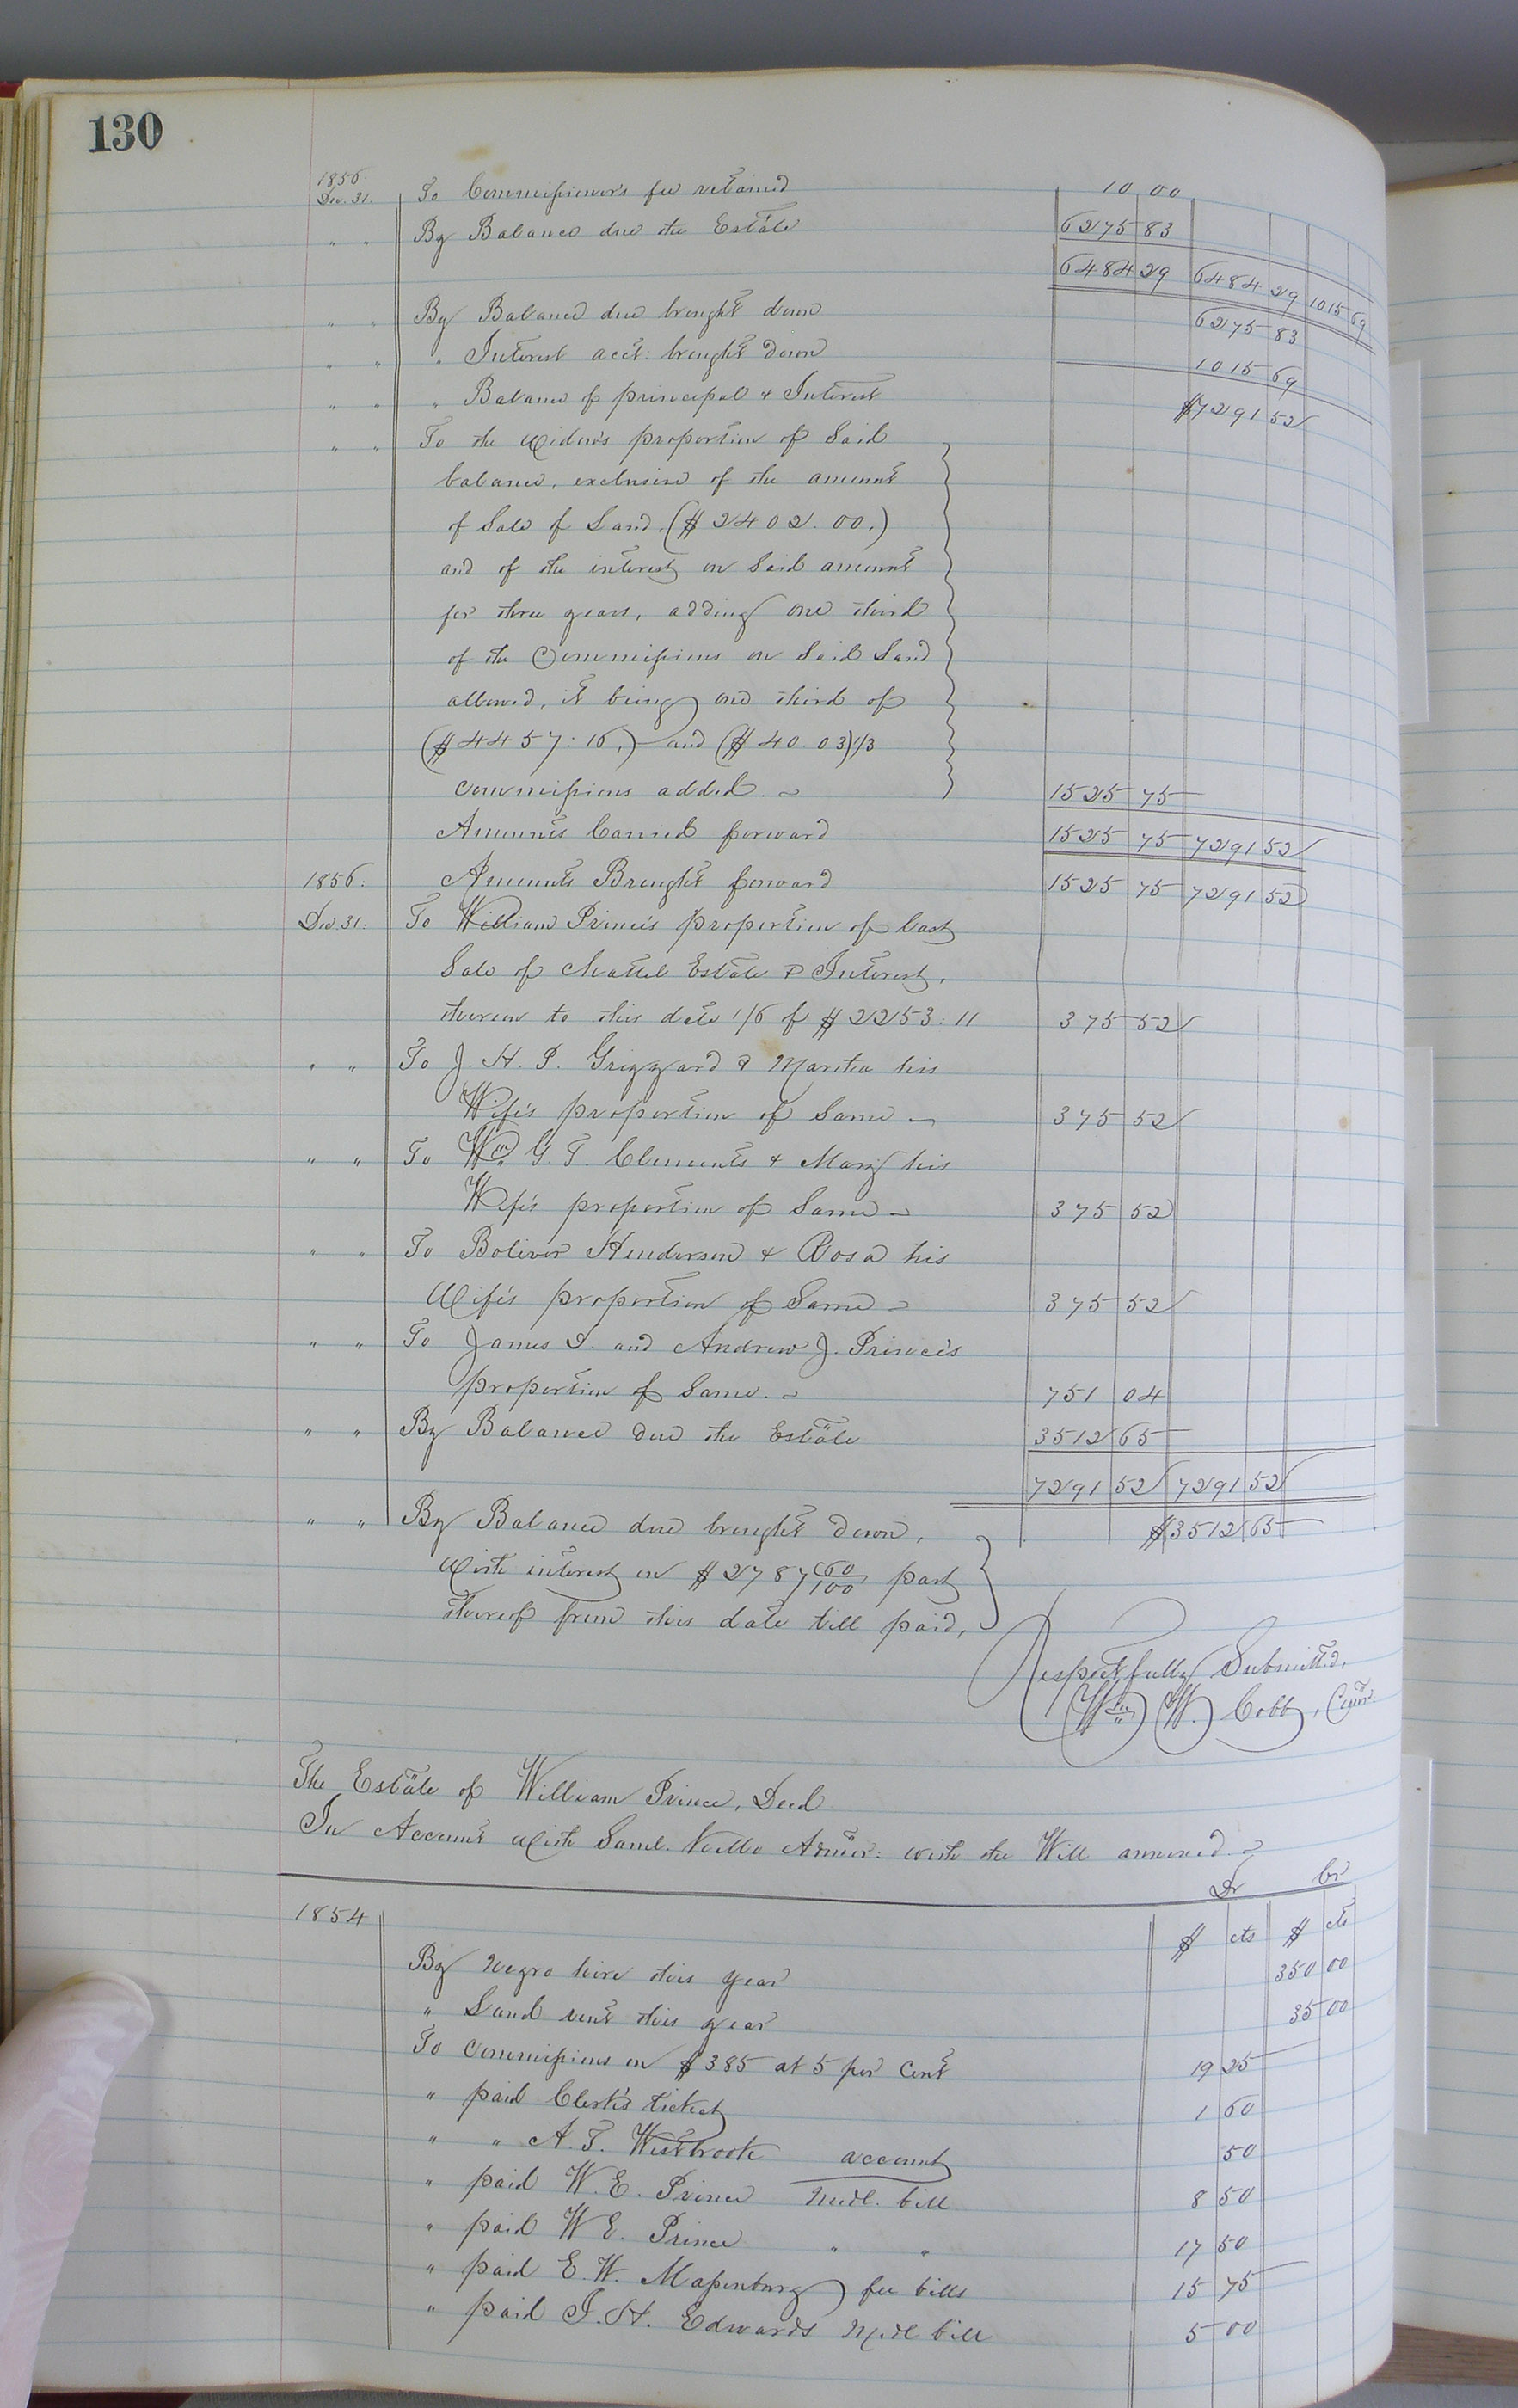 130
1856.
Dec. 31. To Commissioners fee retained 10 00
" " By Balance due the Estate 6275 83
6484 29 6484 29 1015 69
" " By Balance due brought down 6275 83
" " " Interest acct: brought down 1015 69
" " " Balance of principal & Interest $7291 52
" " To the Widow's proportion of Said
balance, exclusive of the amount
of Sale of Land, ($2402.00.)
and of the interest on Said amount
for three years, adding one third
of the Commissions on Said Land
allowed, it being one third of
($4457:16,) and ($40.03) 1/3
commissions added. 1525 75
Amounts Carried forward 1525 75 7291 52
1856: Amounts Brought forward 1525 75 7291 52
Dec. 31: To William Prince's proportion of last
Sale of Chattel Estate & Interest,
thereon to this date 1/6 of $2253:11 375 52
" " To J. H. P. Grizzard & Martha his
Wife's proportion of Same 375 52
" " To Wm. G. T. Clements & Mary his
Wife's proportion of Same 375 52
" " To Bolivor Henderson & Rosa his
Wife's proportion of Same 375 52
" " To James S. and Andrew J. Prince's
proportion of Same. 751 04
" " By Balance due the Estate 3512 65
7291 52 7291 52
" " By Balance due brought down, $3512 65
With interest on $2787 60/100 part
thereof from this date till paid,
Respectfully Submitted,
Wm. W. Cobb, Comr.
The Estate of William Prince, Decd
In Account with Saml. Kello Admr: with the Will annexed.
Dr Cr
1854 $ cts $ cts
By negro hire this year 350 00
" Land rent this year 35 00
To commissions on $385 at 5 per Cent 19 25
" paid Clerk's ticket 1 60
" " A. T. Westbrook account 50
" paid W. E. Prince Medl. bill 8 50
" paid W E. Prince " " 17 50
" paid E. W. Massenburg fee bills 15 75
" paid J. H. Edwards Medl bill 5 00